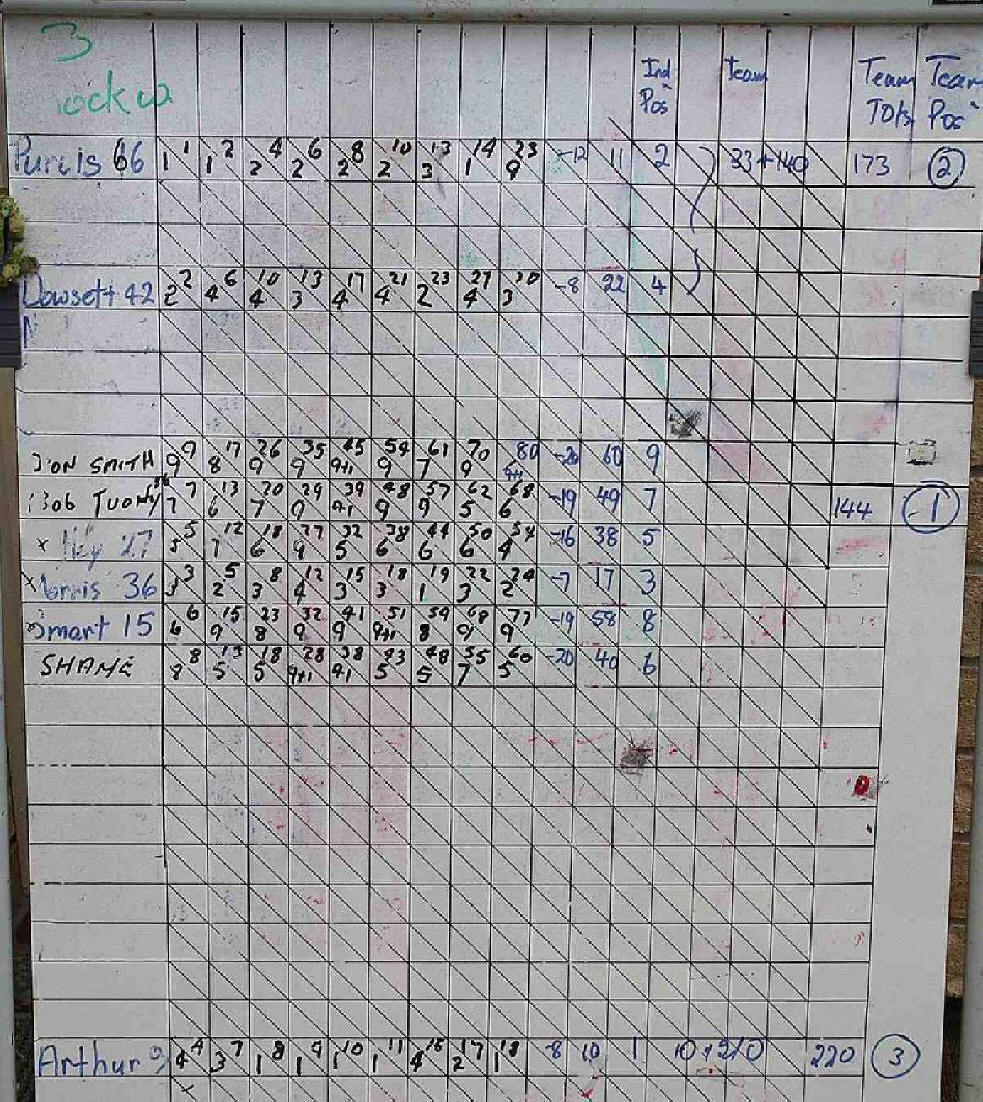 3
Ind Team Team Team
Pos Tots Pos
Purvis 66 1 1 1 2 2 4 2 6 2 8 2 10 3 13 1 14 9 23 -12 11 2 33+140 173 2
Dowsett 42 2 2 4 6 4 10 3 13 4 17 4 21 2 23 4 27 3 30 -8 22 4
N
JON SMITH 9 9 8 17 9 26 9 35 9+1 45 9 54 7 61 9 70 9+1 80 -20 60 9
Bob Tuomy 7 7 6 13 7 20 9 29 9+1 39 9 48 9 57 5 62 6 68 -19 49 7 144 1
x 27 5 5 7 12 6 18 9 27 5 32 6 38 6 44 6 50 4 54 -16 38 5
x Morris 36 3 3 2 5 3 8 4 12 3 15 3 18 1 19 3 22 2 24 -7 17 3
x Smart 15 6 6 9 15 8 23 9 32 9 41 9+1 51 8 59 9 68 9 77 -19 58 8
SHANE 8 8 5 13 5 18 9+1 28 9+1 38 5 43 5 48 7 55 5 60 -20 40 6
Arthur 4 4 3 7 1 8 1 9 1 10 1 11 4 15 2 17 1 18 -8 10 1 10+210 220 3
x